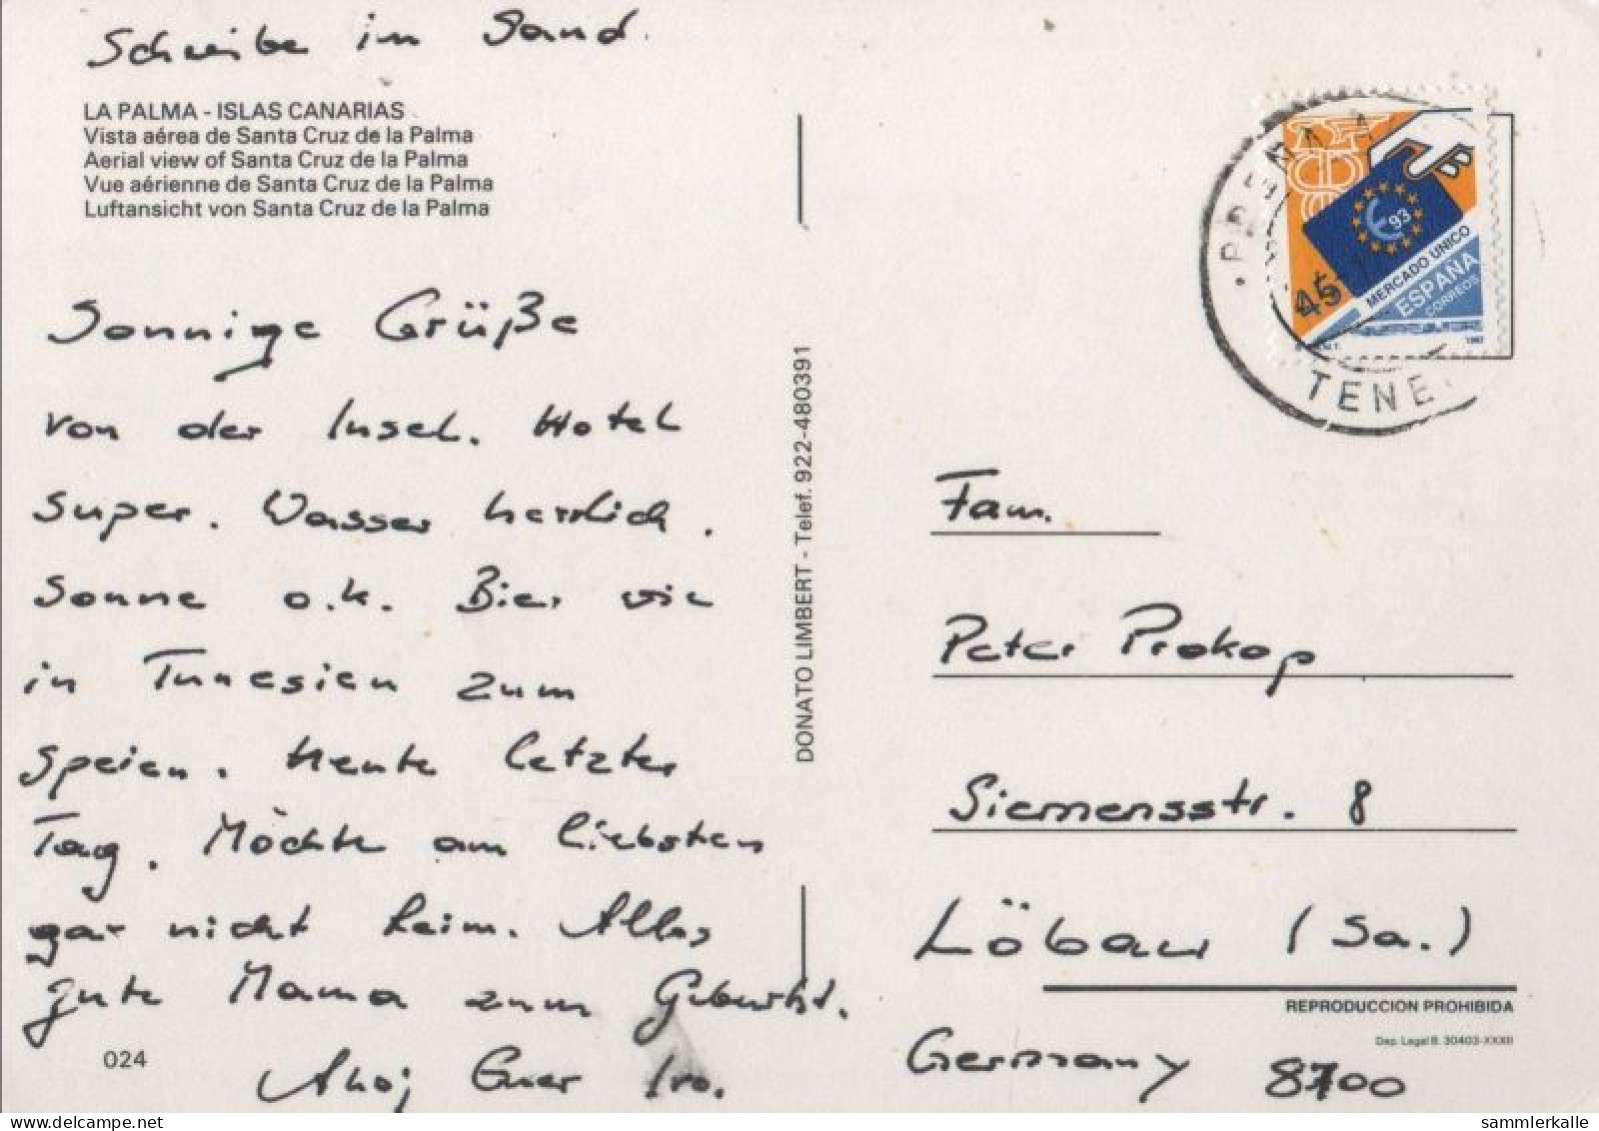 Schreibe im Sand.
LA PALMA - ISLAS CANARIAS
Vista aérea de Santa Cruz de la Palma
Aerial view of Santa Cruz de la Palma
Vue aérienne de Santa Cruz de la Palma
Luftansicht von Santa Cruz de la Palma
Sonnige Grüße
von der Insel. Hotel
super. Wasser herrlich.
Sonne o.k. Bier wie
in Tunesien zum
speien. Heute letzter
Tag. Möchte am liebsten
gar nicht heim. Alles
gute Mama zum Geburtst.
Ahoj Euer
024
DONATO LIMBERT - Telef. 922-480391
45
E 93
MERCADO UNICO
ESPAÑA
CORREOS
1992
TENE
Fam.
Peter Prokop
Siemensstr. 8
Löbau (Sa.)
REPRODUCCION PROHIBIDA
Dep. Legal B. 30403-XXXII
Germany 8700
sammlerkalle